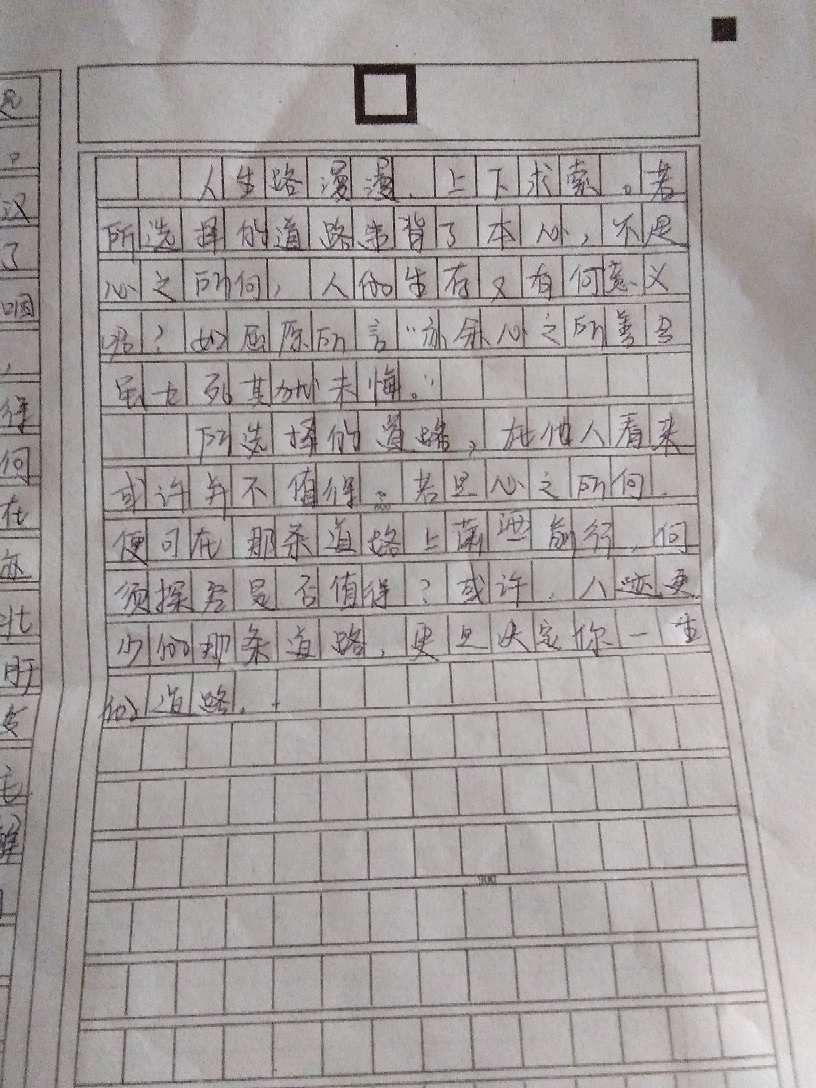 人生路漫漫，上下求索。若
所选择的道路违背了本心，不是
心之所向，人的生存又有何意义
呢？如屈原所言“亦余心之所善兮
虽九死其犹未悔。”
所选择的道路，在他人看来
或许并不值得。若是心之所向，
便可在那条道路上潇洒前行，何
须探究是否值得？或许，人迹更
少的那条道路，更是决定你一生
的道路。
900
是
。
汉
了
咽
，
得
何
在